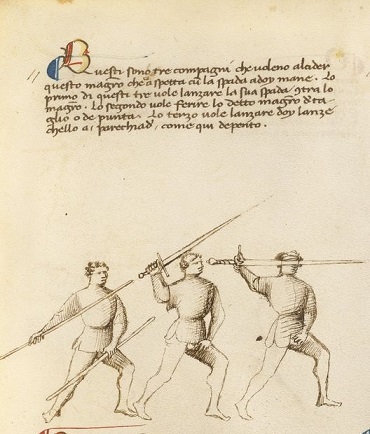 Questi sono tre compagni che voleno alcider
questo magro ch'aspetta cū la spada a doy mane. Lo
primo di questi tre vole lanzare la sua spada ꝯtra lo
magro. Lo segondo vole ferire lo detto magro d'ta-
glio o de punta. Lo terzo vole lanzare doy lanze
ch'ello a, parechiad', come qui depento.